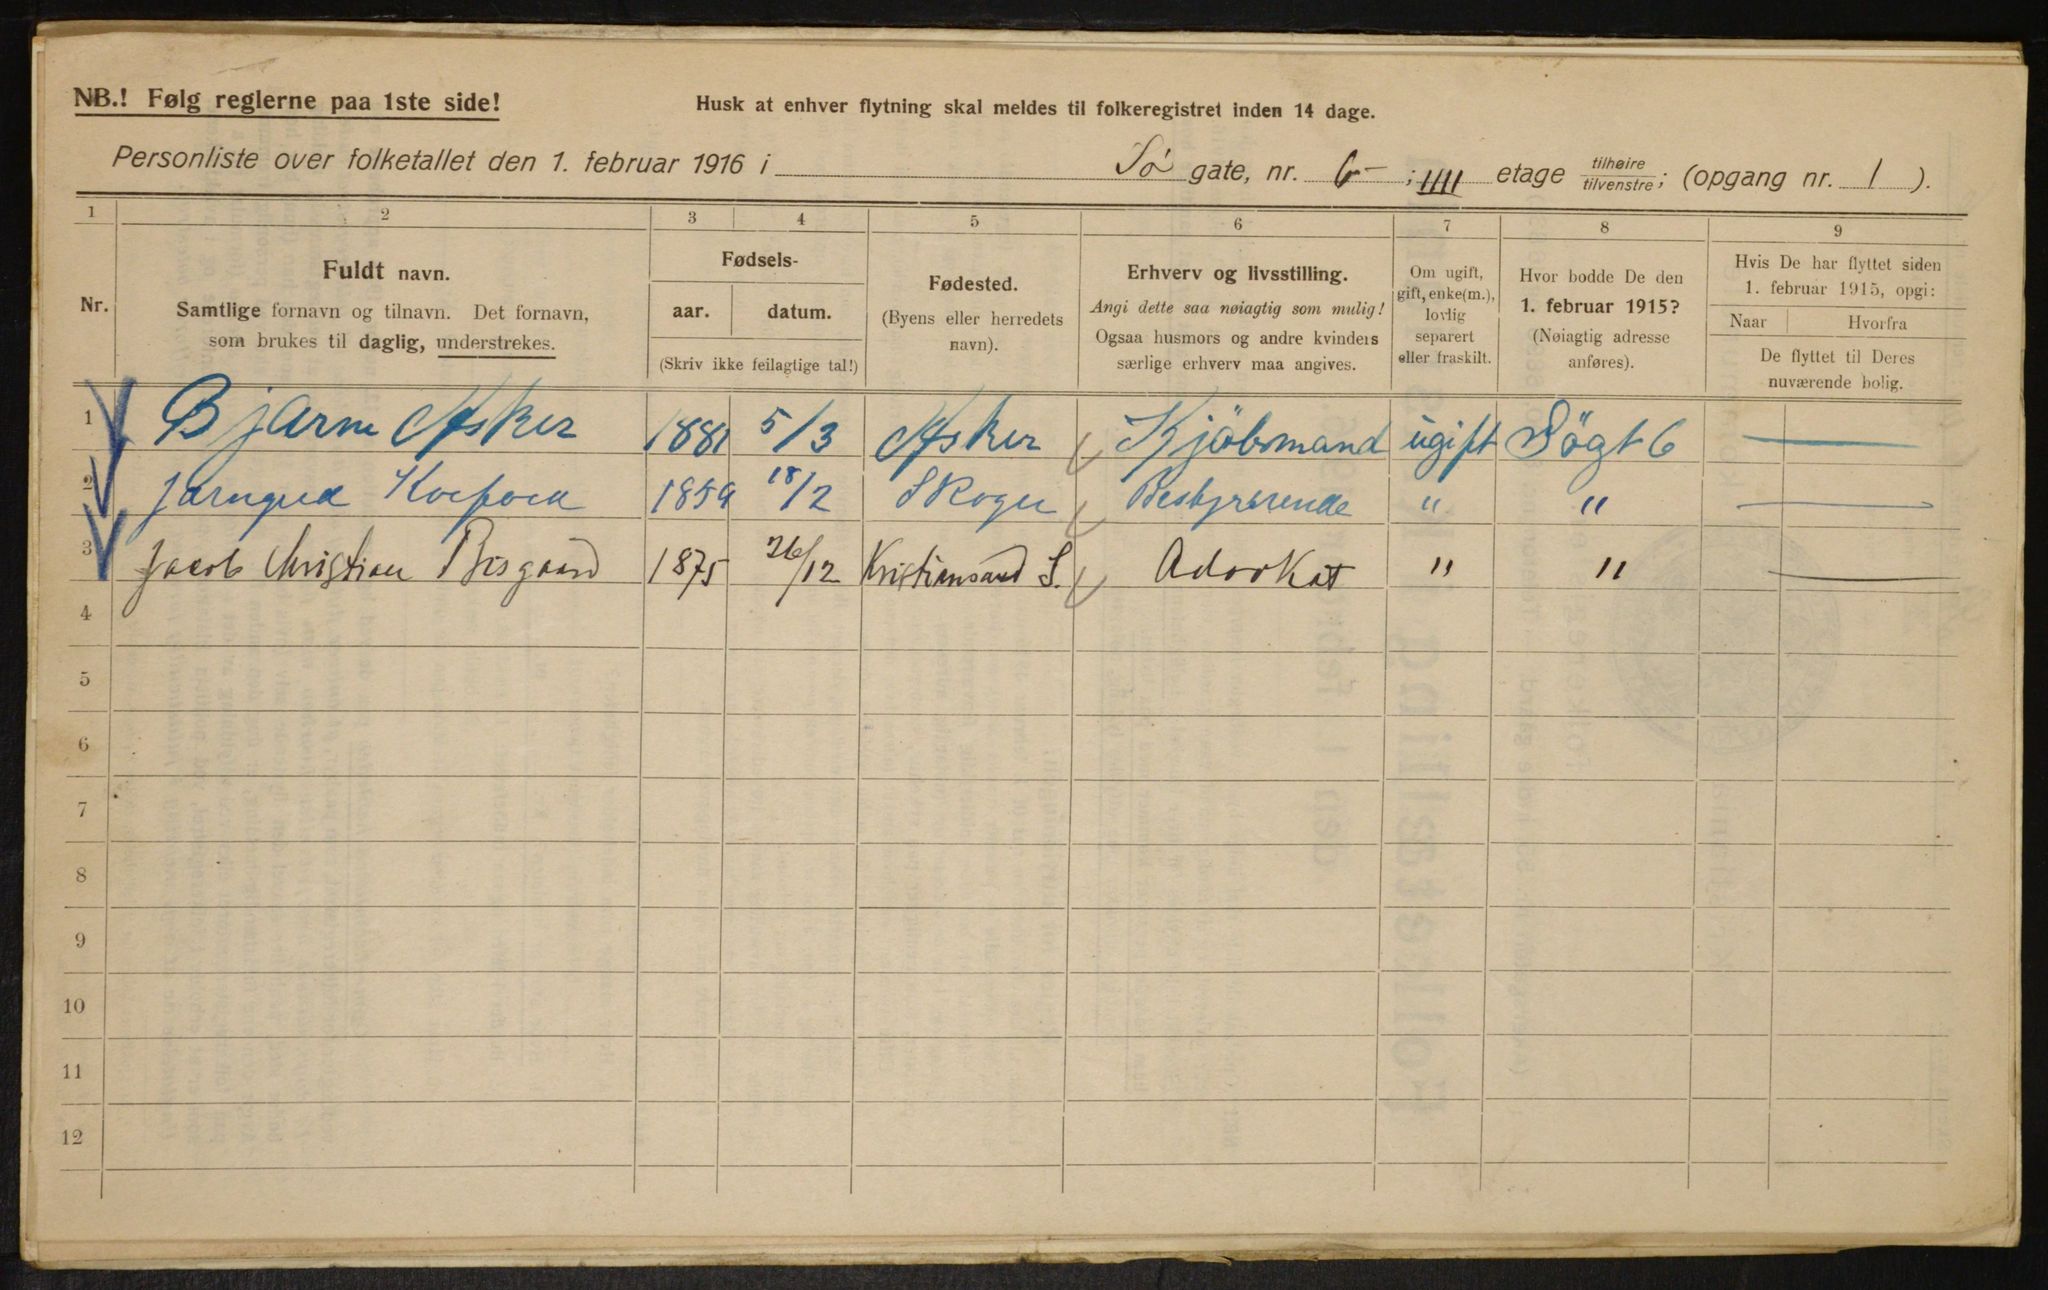 NB.! Følg reglerne paa 1ste side!
Husk at enhver flytning skal meldes til folkeregistret inden 14 dage.
Personliste over folketallet den 1. februar 1916 i Sø gate, nr. 6 ; IIII etage tilhøire/tilvenstre; (opgang nr. 1 ).
1 2 3 4 5 6 7 8 9
Nr.
Fuldt navn.
Samtlige fornavn og tilnavn. Det fornavn,
som brukes til daglig, understrekes.
Fødsels-
aar. datum.
(Skriv ikke feilagtige tal!)
Fødested.
(Byens eller herredets
navn).
Erhverv og livsstilling.
Angi dette saa nøiagtig som mulig!
Ogsaa husmors og andre kvinders
særlige erhverv maa angives.
Om ugift,
gift, enke(m.),
lovlig
separert
eller fraskilt.
Hvor bodde De den
1. februar 1915?
(Nøiagtig adresse
anføres).
Hvis De har flyttet siden
1. februar 1915, opgi:
Naar Hvorfra
De flyttet til Deres
nuværende bolig.
1 Bjarne Asker 1881 5/3 Asker Kjöbmand ugift Søgt 6 —
2 1859 18/2 Skoger Bestyrerende " " —
3 Jacob Christian Bisgaard 1875 26/12 Kristiansand S. Advokat " " —
4
5
6
7
8
9
10
11
12